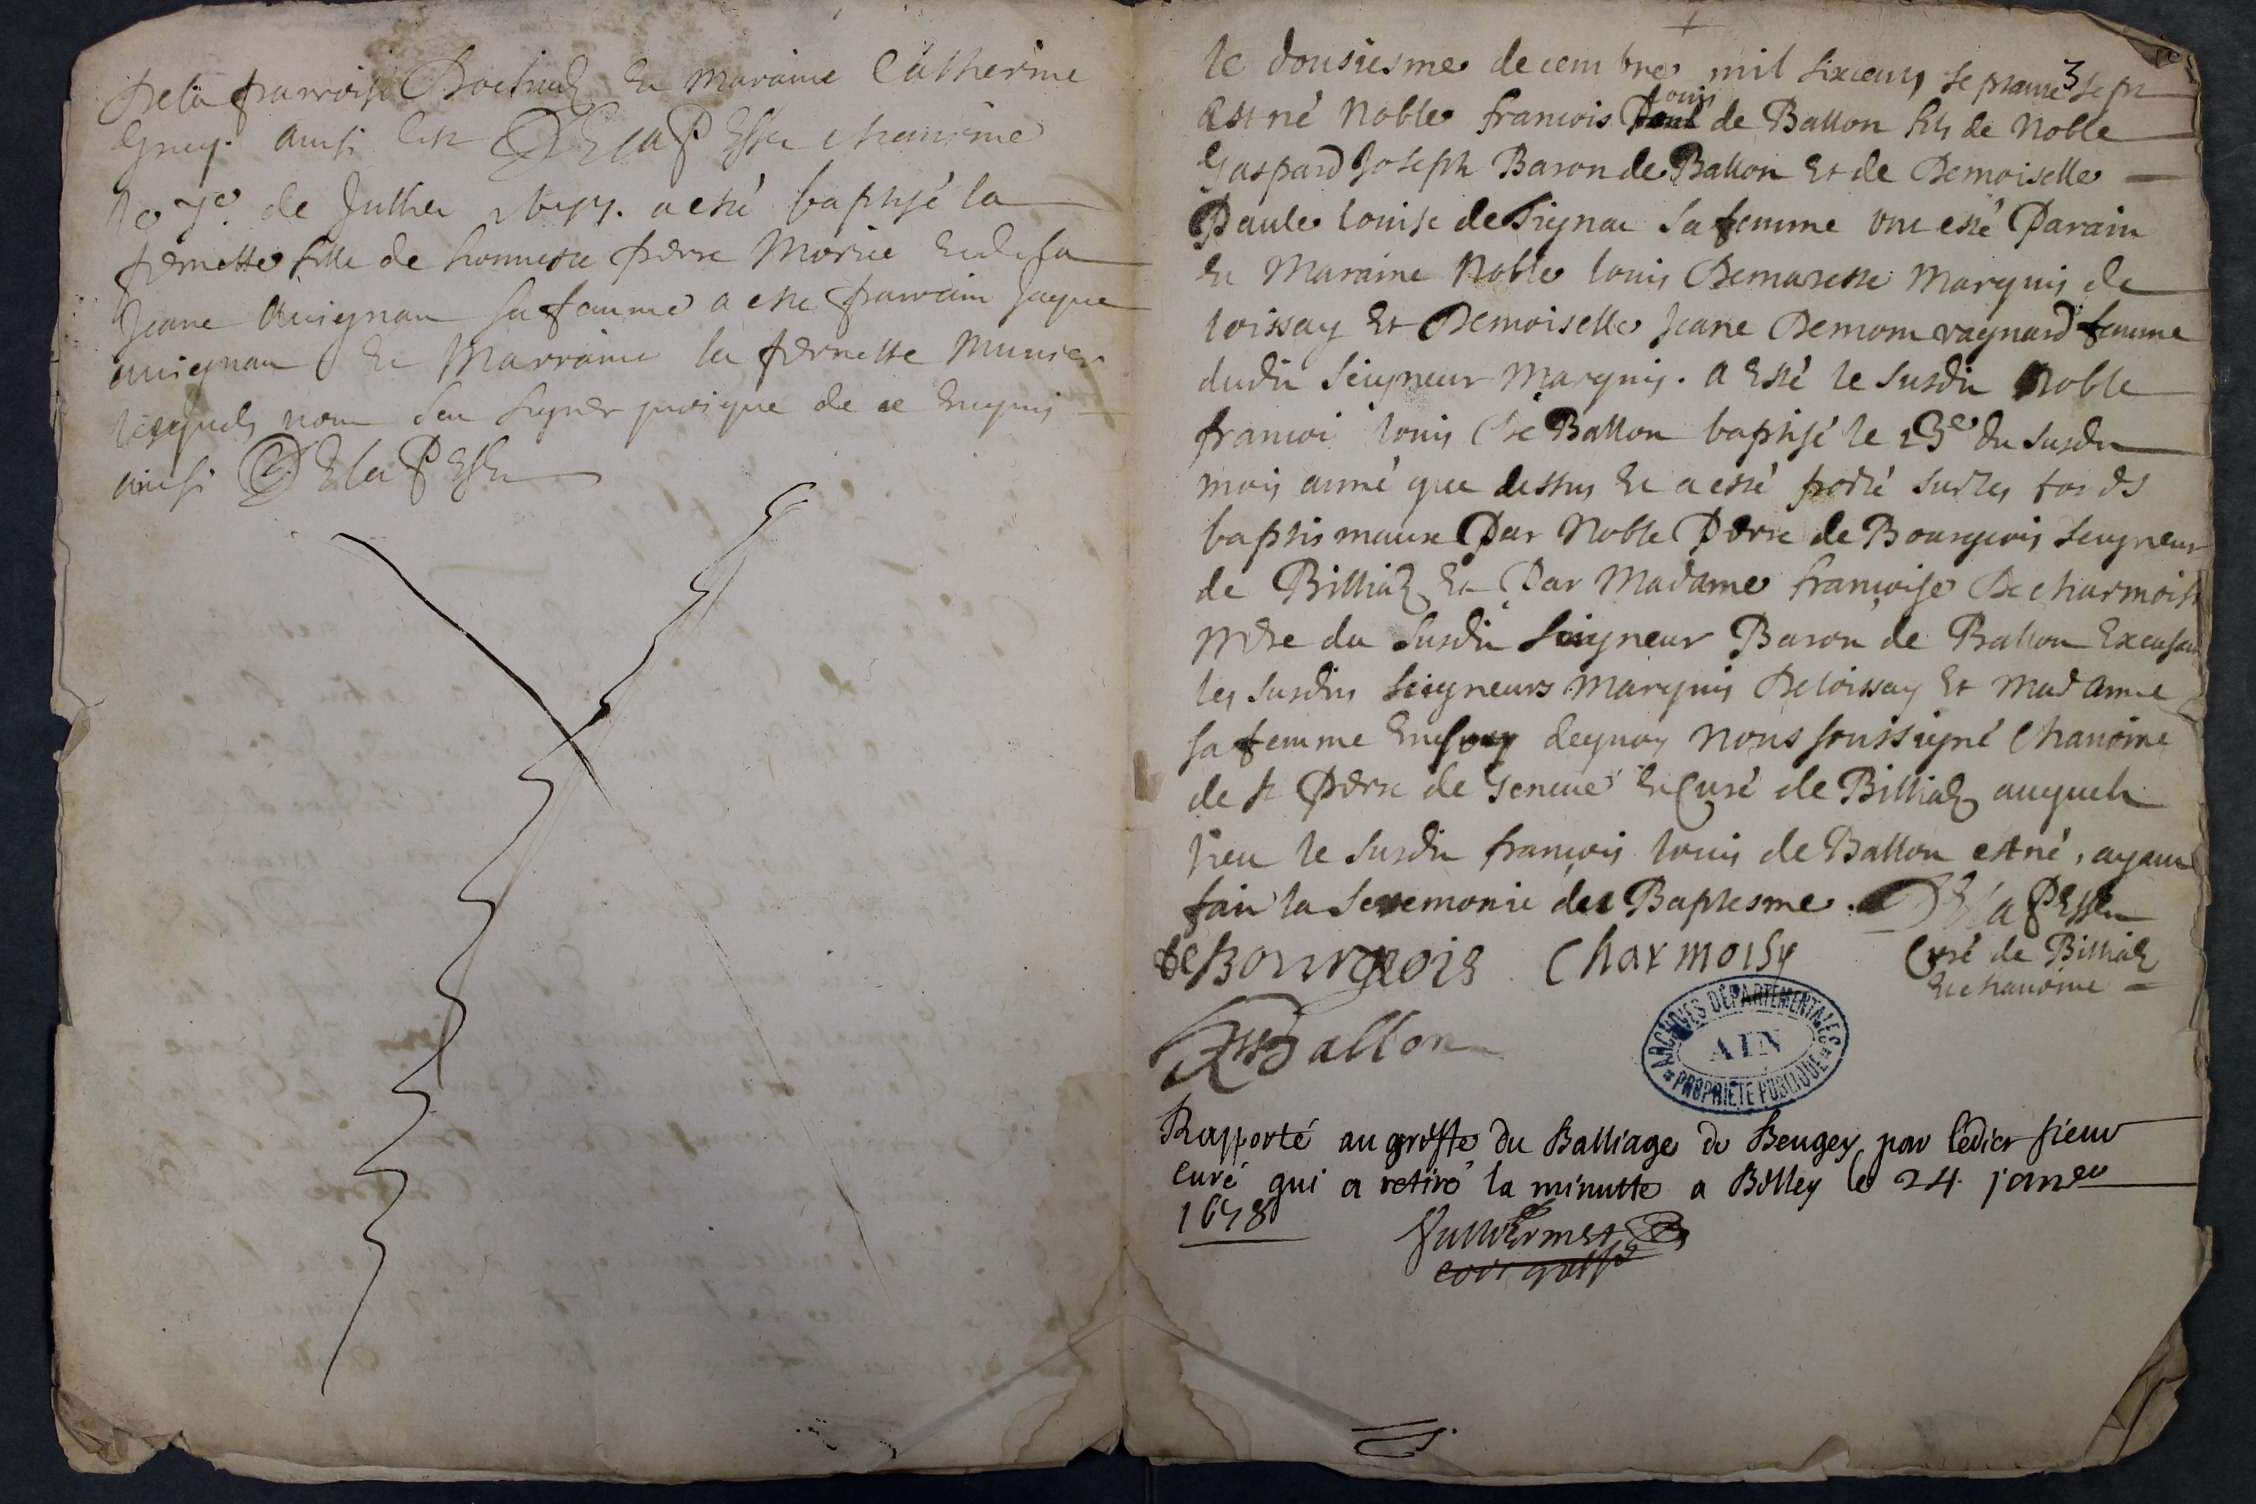 De la parroisse et Maraine Catherine
ainsi est DElaPEsse chanoine
le 7e. de Jullier 1677. a esté baptisé la
pernette fille de honneste pierre Morier et de la
Jeane Avignan sa femme a esté parrain Jaque
avignan et Marraine la pernette Munier
lesquels nont seu signer quoique de ce enquis
ainsi DElaPEsse
le dousiesme decembre mil sixcents septante sept
Est né Noble francois louis de Ballon fils de Noble
Gaspard Joseph Baron de Ballon Et de Demoiselle
Paule louise de Sirgnac sa femme ont esté Parain
et Maraine Noble louis Demareste Marquis de
loissay Et Demoiselle Jeane Demom vagnard femme
dudit Seigneur Marquis. a Esté le Susdit Noble
francoi louis De Ballon baptisé le 13e du Susdit
mois anné que dessus et a esté porté sur les fonds
baptismaux Par Noble Pierre de Bourgeois Seigneur
de Billiaz Et Par Madame françoise Decharmoisi
Mere du susdit Seigneur Baron de Ballon Excusant
les susdits Seigneurs Marquis Deloissay Et Madame
sa femme Ensuy dequoy Nous soussigné Chanoine
de st Pierre de Geneve et Curé de Billiaz auquel
lieu le susdit françois louis de Ballon est né, ayant
fait la Seremonie de Baptesme. DElaPEsse
Curé de Billiaz
et chanoine
de Bourgeois Charmoisy
Ballon
ARCHIVES DEPARTEMENTALES
AIN
PROPRIETE PUBLIQUE
Rapporté au greffe du Balliage de Beugey par ledict sieur
curé qui a retiré la minutte a Belley le 24. janer
1678